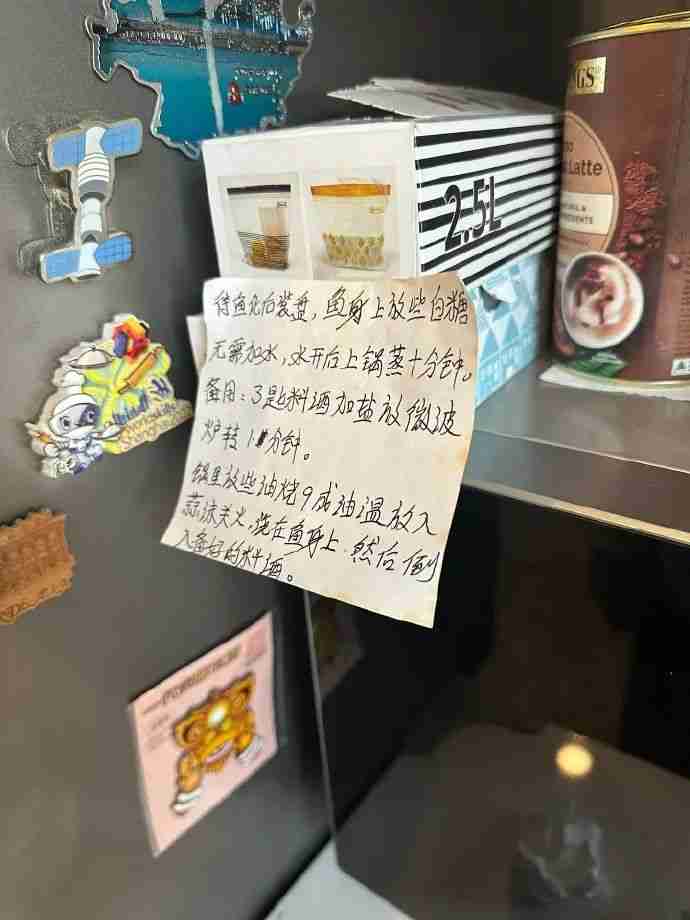 2.5L
GS®
Latte
待鱼化后装盘，鱼身上放些白糖
无需加水，水开后上锅蒸十分钟。
备用：3匙料酒加盐放微波
炉转1分钟。
锅里放些油烧9成油温放入
蒜沫关火，浇在鱼身上.然后倒
入备好的料酒。